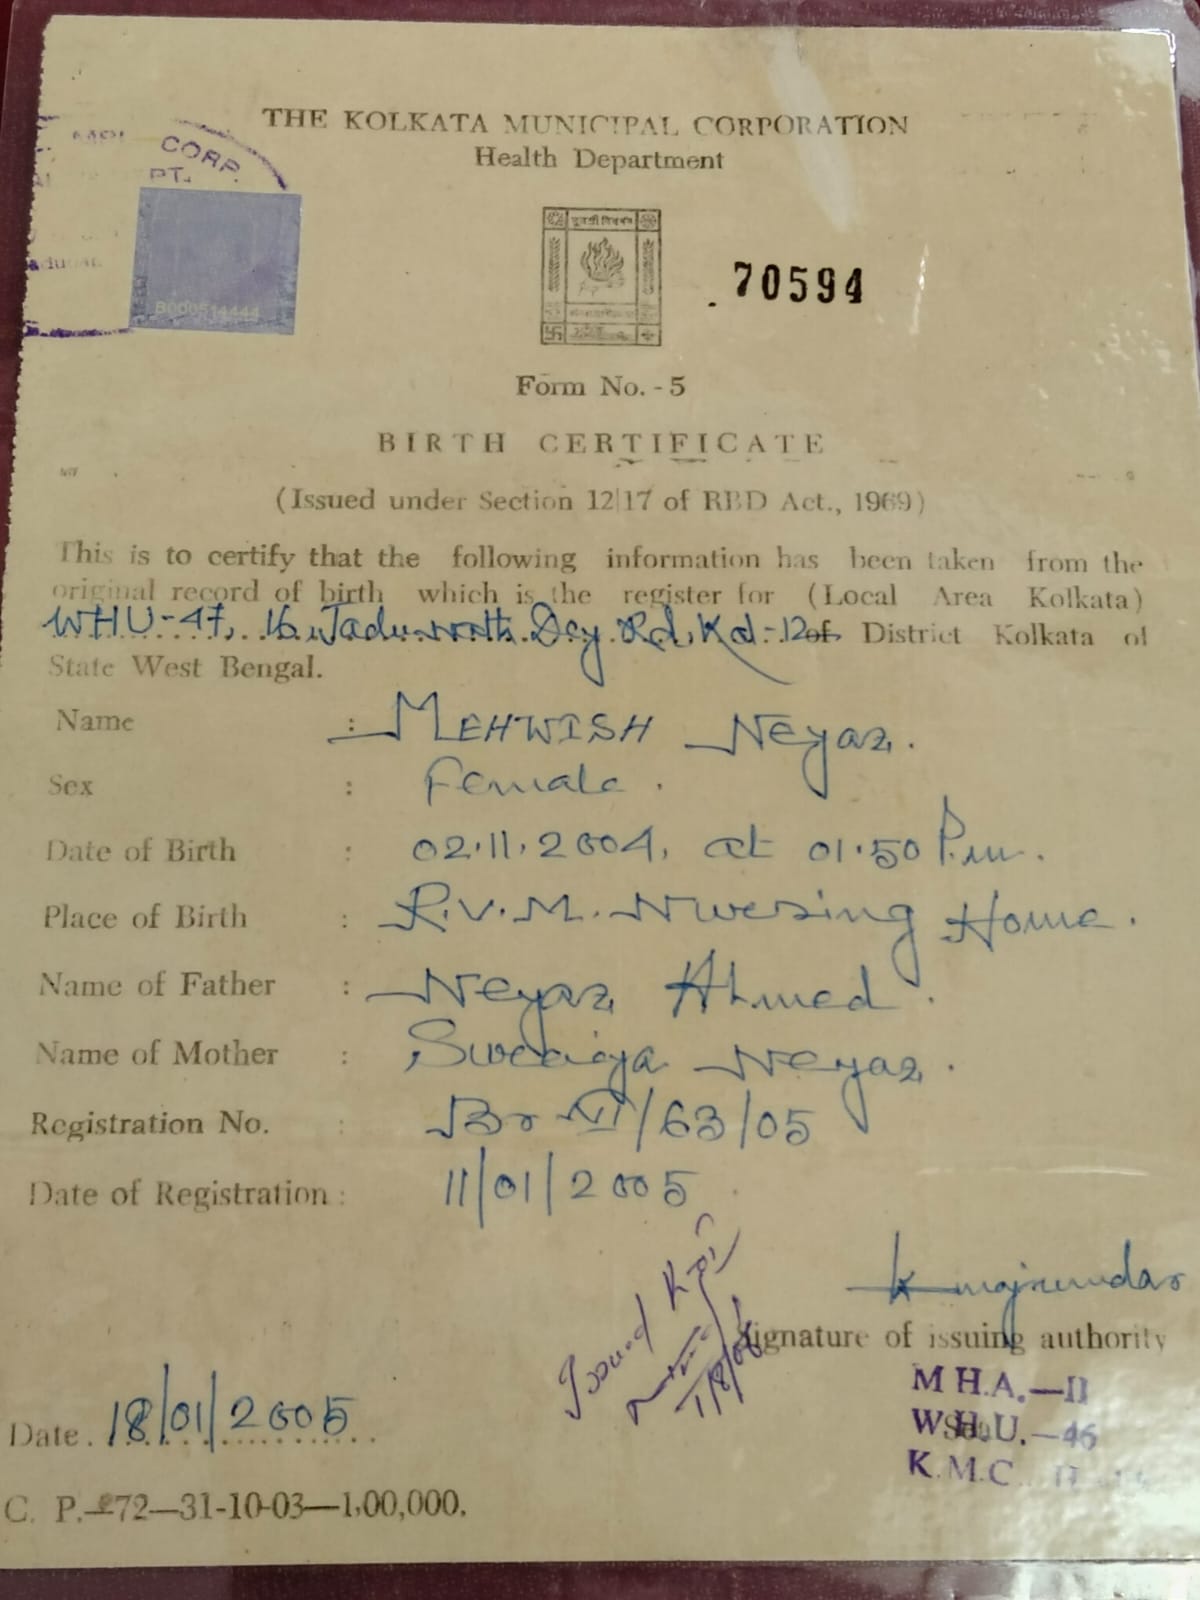 CORP.
PT.
THE KOLKATA MUNICIPAL CORPORATION
Health Department
70594
Form No. - 5
BIRTH CERTIFICATE
(Issued under Section 12|17 of RBD Act., 1969)
This is to certify that the following information has been taken from the
original record of birth which is the register for (Local Area Kolkata)
WHU-47, 16, Jadu nath Dey Rd, Kol-12 of District Kolkata of
State West Bengal.
Name : MEHWISH Neyaz.
Sex : Female.
Date of Birth : 02.11.2004, at 01.50 P.m.
Place of Birth : R.V.M. Nursing Home.
Name of Father : Neyaz Ahmed.
Name of Mother : Neyaz.
Registration No. : Br VI/63/05
Date of Registration : 11/01/2005
Issued
Signature of issuing authority
M H.A.—II
W.H.U.—46
K.M.C.
Date. 18/01/2005
C. P.—272—31-10-03—1,00,000.